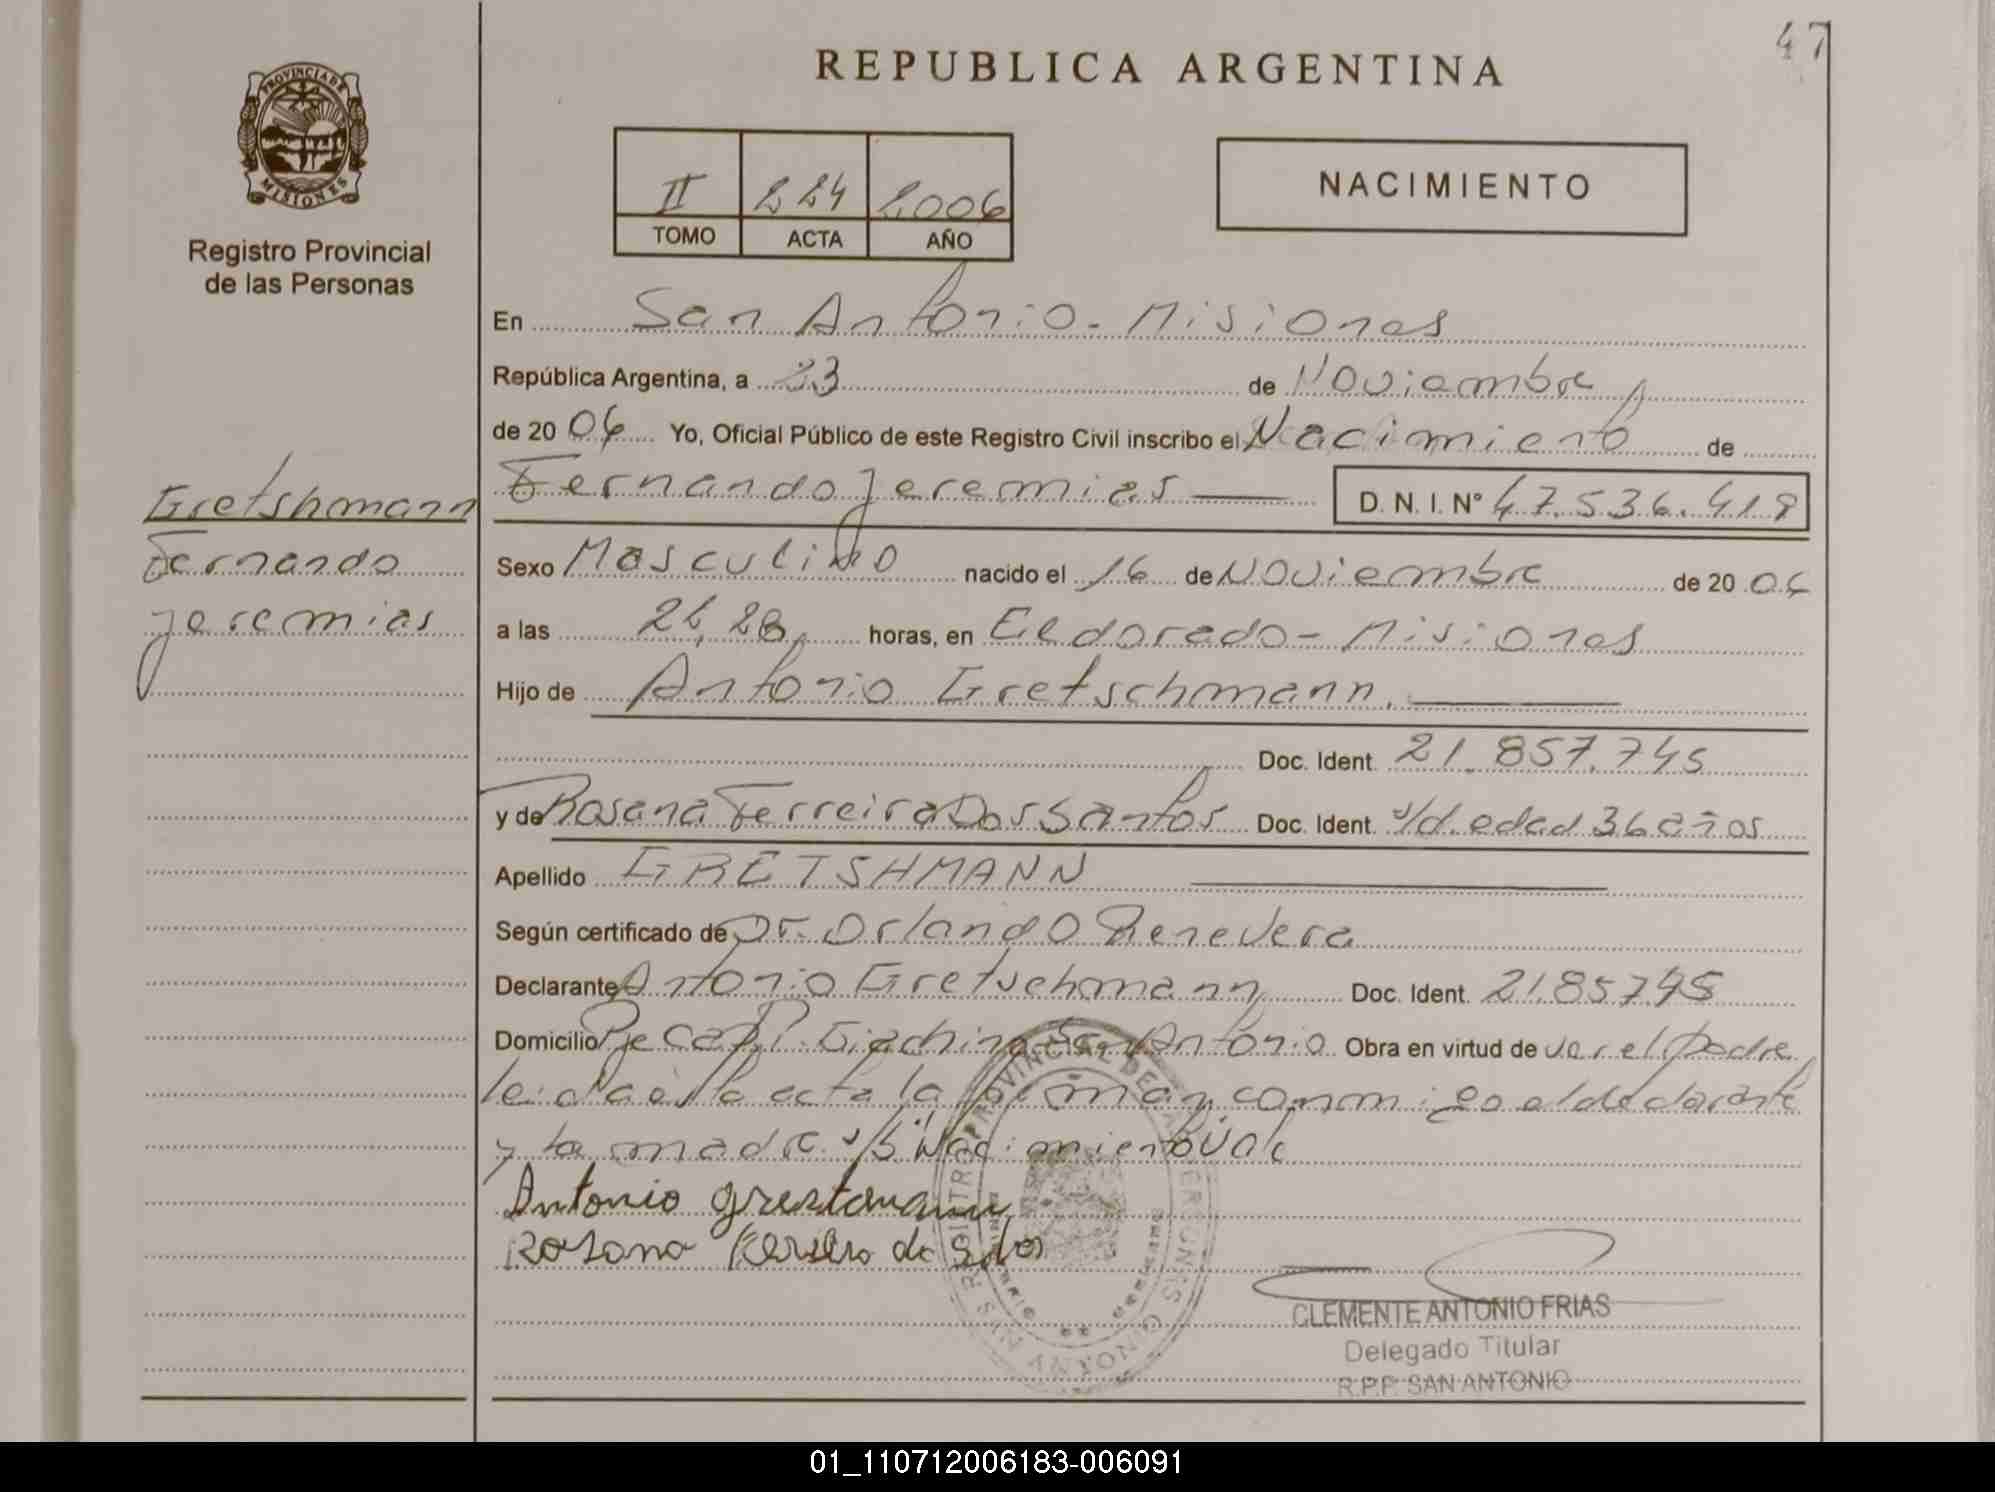 47
REPUBLICA ARGENTINA
PROVINCIA DE
MISIONES
Registro Provincial
de las Personas
II 224 2006
TOMO ACTA AÑO
NACIMIENTO
En San Antonio - Misiones
República Argentina, a 23 de Noviembre
de 20 06 Yo, Oficial Público de este Registro Civil inscribo el Nacimiento de
Gretshmann
Fernando
Jeremias
Fernando Jeremias D. N. I. Nº 47.536.418
Sexo Masculino nacido el 16 de Noviembre de 20 06
a las horas, en Eldorado - Misiones
Hijo de Antonio Gretschmann.
Doc. Ident. 21.857.745
y de Rosana Ferreira Dos Santos Doc. Ident. s/d. edad 36 años
Apellido GRETSHMANN
Según certificado de Dr. Orlando Benevera
Declarante Antonio Gretschmann Doc. Ident. 21.857.745
Domicilio Pje Cap. Giachino San Antonio Obra en virtud de ser el padre
leida esta acta la firman conmigo el declarante
y la madre s/b "Nacimiento" Vale
Antonio
Rosana
REGISTRO PROVINCIAL DE LAS PERSONAS
SAN ANTONIO
CLEMENTE ANTONIO FRIAS
Delegado Titular
R.P.P. SAN ANTONIO
01_110712006183-006091